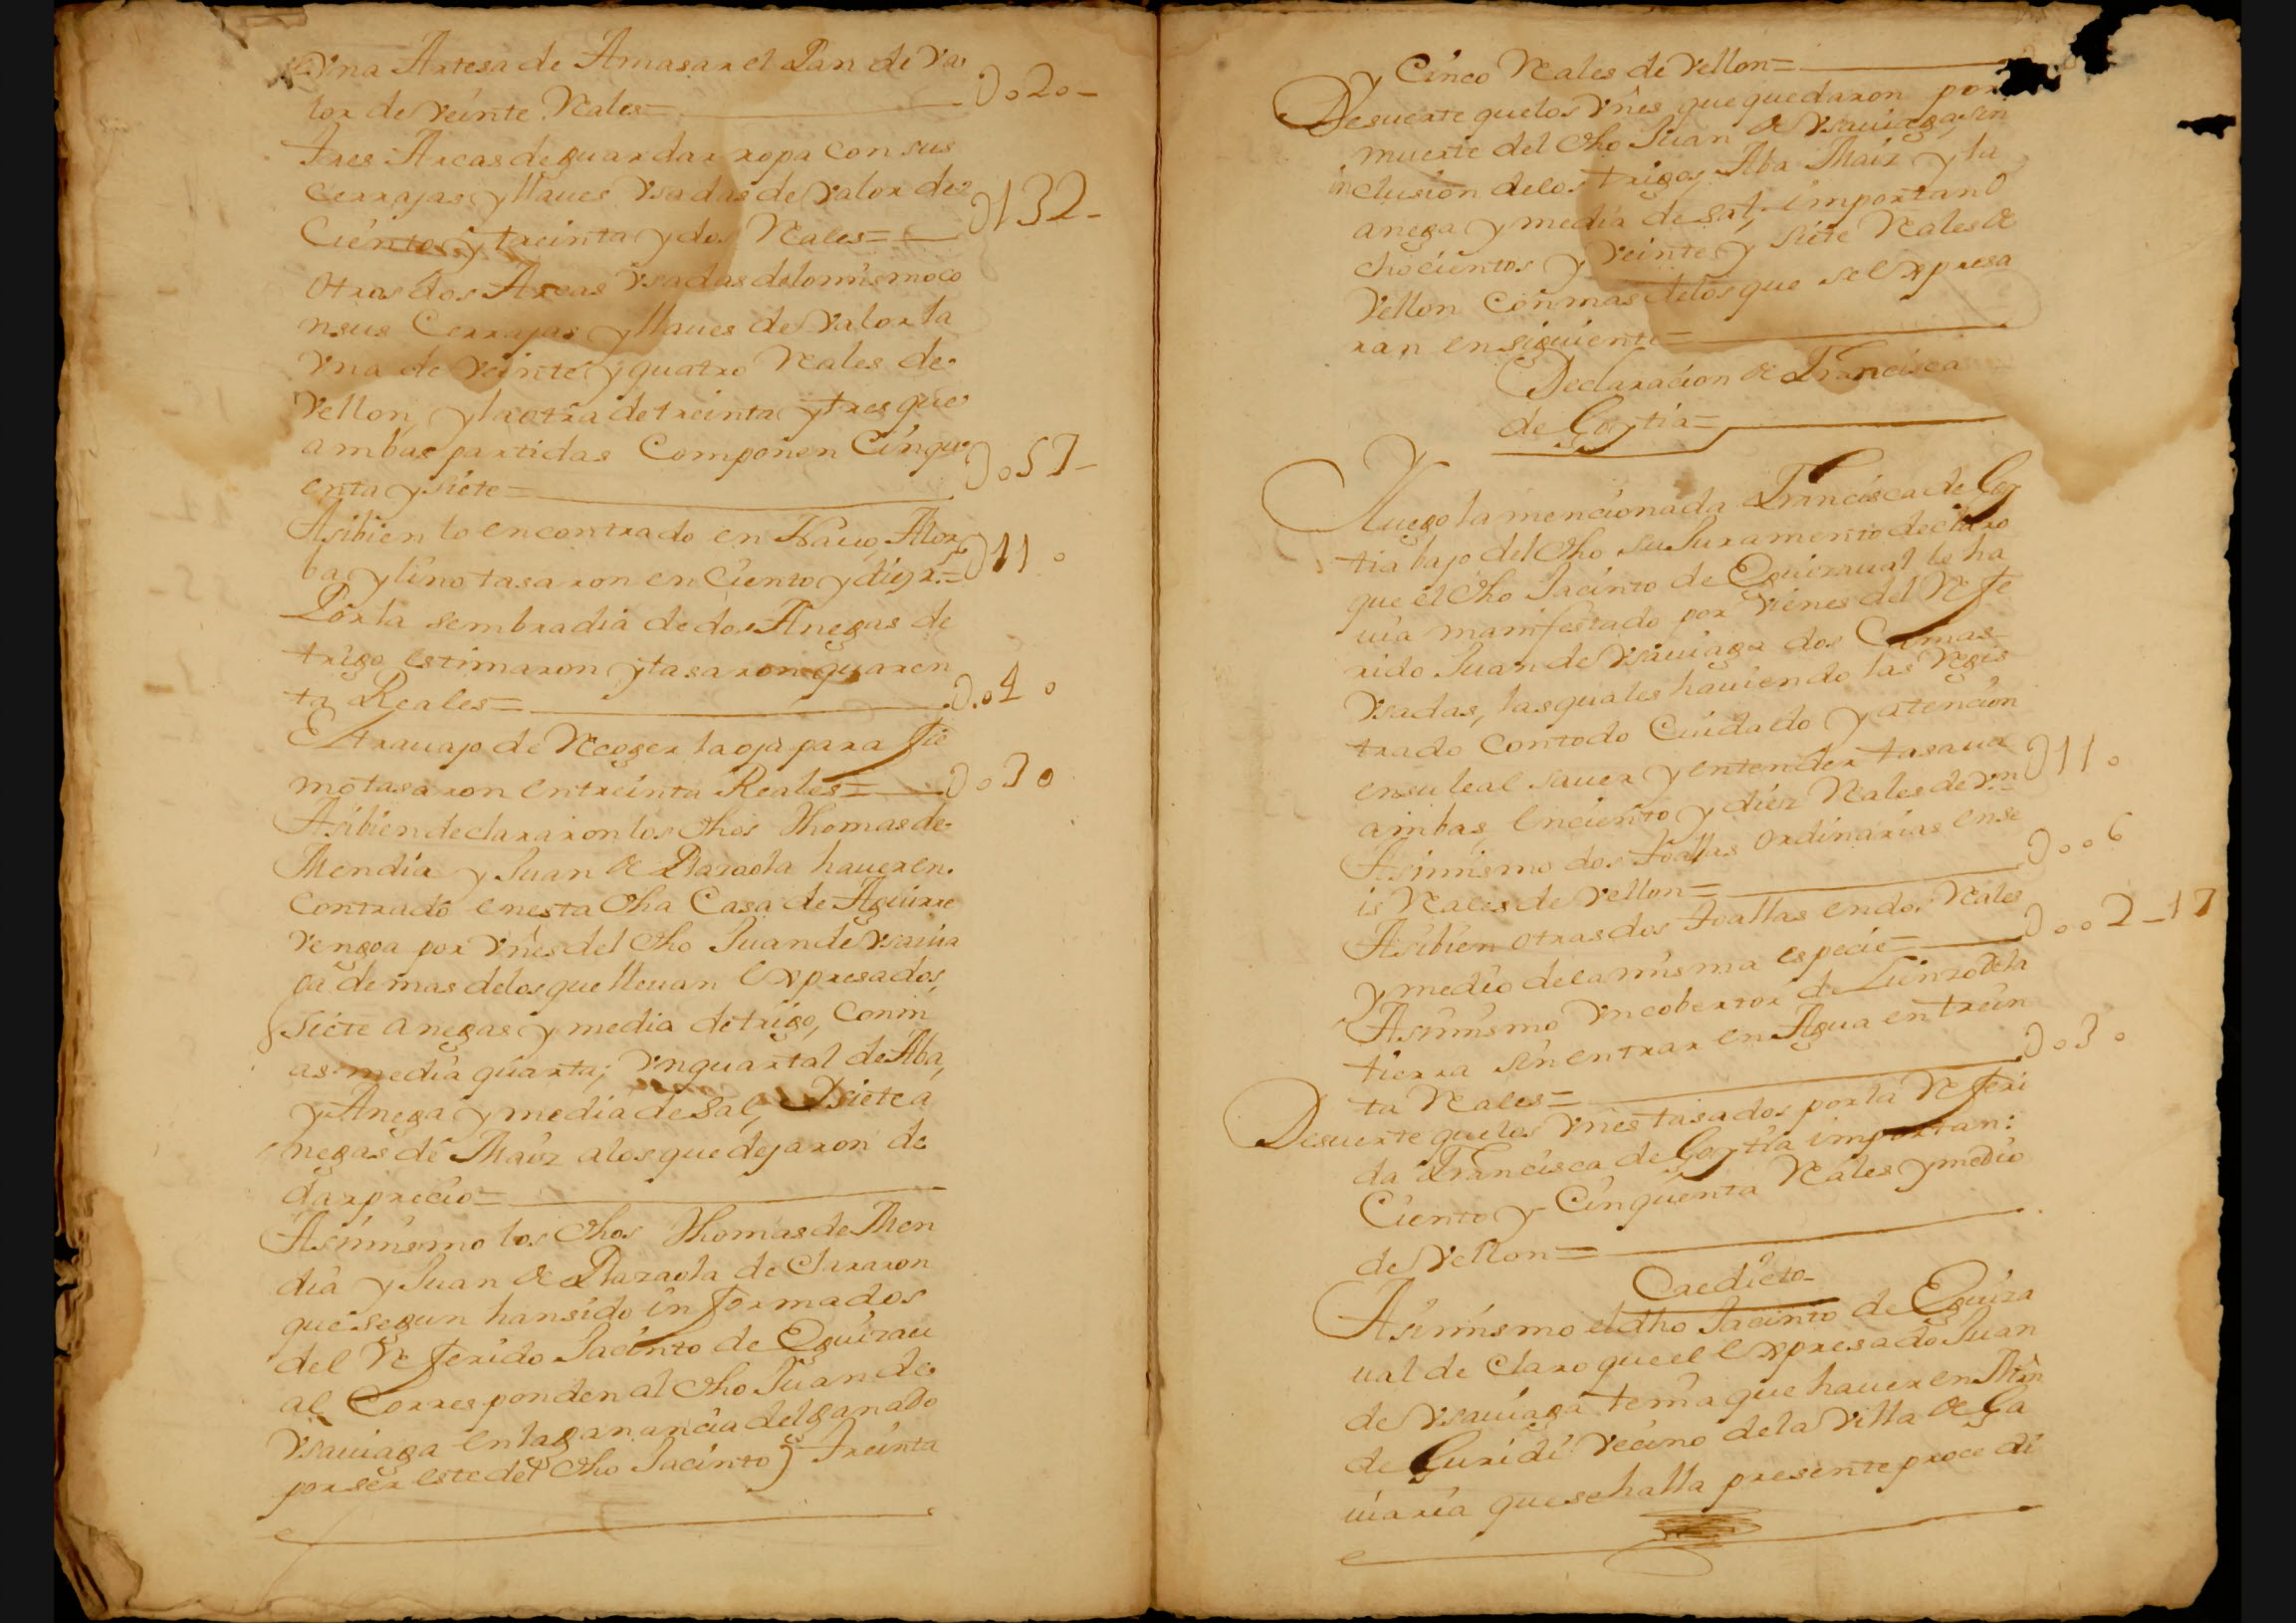 Vna Artesa de Amasar el Pan de Va
lor de Veinte Reales= D020-
Tres Arcas de guardar ropa con sus
cerrajas y llaues Vsadas de Valor de
Ciento y treinta y dos Reales= D132-
Otras dos Arcas Vsadas delo mismo co
n sus Cerrajas y llaues de Valor la
Vna de Veinte y quatro Reales de
Vellon, y la otra de treinta y tres que
ambas partidas Componen Cinqu
enta y siete= D057-
Asibien lo encontrado en Nauo, Alor
ba y lino tasaron en Ciento y diez rs.= D110
Por la sembradia de dos Anegas de
trigo estimaron y tasaron quaren
ta Reales= D040
El trauajo de Recoger la oja para fie
mo tasaron en treinta Reales= D030
Asibien declararon los dhos Thomas de
Mendia y Juan de Plazaola hauer en
Contrado en esta dha Casa de Aguirre
Vengoa por Vnes del dho Juan de Vsauia
ga demas delos que lleuan Expresados,
siete anegas y media de trigo, Con m
as media quarta; Vn quartal de Aba,
y Anega y media de Sal, y siete a
negas de Maiz alos que dejaron de
dar precio=
Asimismo los dhos Thomas de Men
dia y Juan de Plazaola de Clararon
que segun han sido informados
del Referido Jacinto de Eguizau
al Corresponden al dho Juan de
Vsauiaga en la ganancia del ganado
por ser este del dho Jacinto) treinta
y Cinco Reales de Vellon=
De suerte que los Vnes que quedaron por
muerte del dho Juan de Vsauiaga, sin
inclusion delos trigos Aba Maiz y la
anega y media de sal, importan O
chocientos y Veinte y siete Reales de
Vellon Con mas delos que se Expresa
ran en siguiente=
Declaracion de Francisca
de Goytia=
Y luego la mencionada Francisca de Goy
tia bajo del dho su Juramento declaro
que el dho Jacinto de Eguizaual le ha
uia manifestado por Vienes del Refe
rido Juan de Vsauiaga dos Camas
Vsadas, las quales hauiendo las Regis
trado Con todo Cuidado y atencion
en su leal sauer y entender tasaua
ambas, en ciento y diez Reales de Vn= D110
Asimismo dos toallas ordinarias en se
is Reales de Vellon= D006
Asibien otras dos toallas en dos Reales
y medio de la misma especie= D002-17
Asimismo Vn cobertor de Lienzo dela
tierra sin entrar en Agua en trein
ta Reales= D030
De suerte que los Vnes tasados por la Referi
da Francisca de Goytia importan:
Ciento y Cinquenta Reales y medio
de Vellon=
Credito
Asimismo el dho Jacinto de Eguiza
ual de Claro que el Expresado Juan
de Vsauiaga tenia que hauer en Mrn
de Guridi Vecino dela Villa de Ga
uiaria que se halla presente procedi